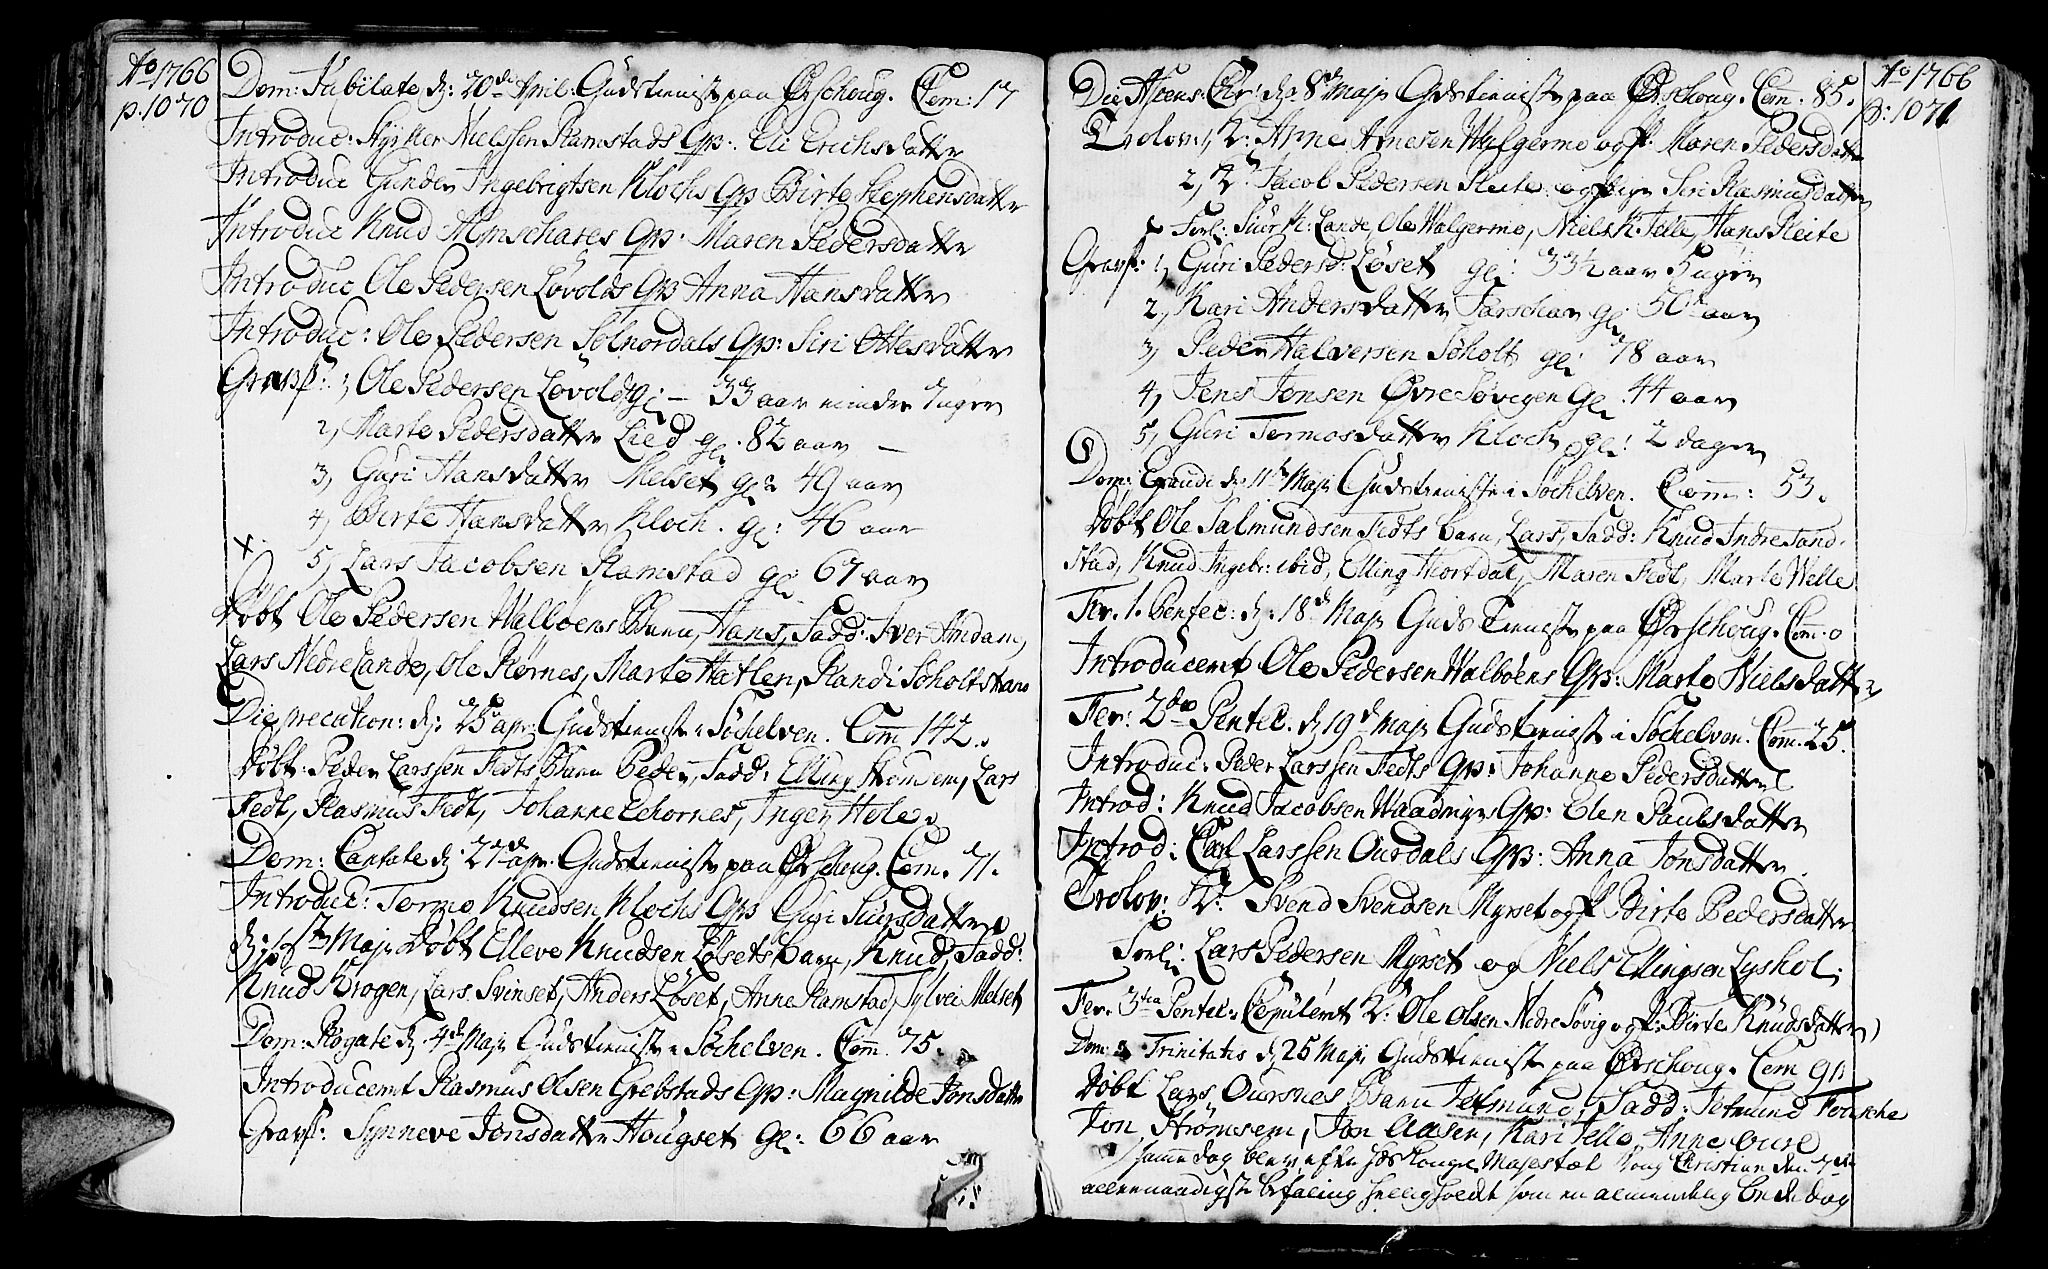 Ao 1766
p. 1070
Dom: Jubilate d: 20de April Gudstienist paa Ørschoug. Com: 17
Introduc: Nielssen Ramstads Qv: Eli Erichsdatter
Introduc Gunder Ingebrigtsen Klochs Qv Birte Stephensdatter
Introduc Knud Qv: Maren Pedersdatter
Introduc Ole Pedersen Løvolds Qv Anna Hansdatter
Introduc: Ole Pedersen Solnordals Qv: Siri Ottesdatter
Gravf: 1, Ole Pedersen Løvold gl – 33 aar minder 7 uger
2, Marte Pedersdatter Lied gl. 82 aar –
3, Guri Hansdatter Melset gl: 49 aar
4, Birte Hansdatter Kloch. gl: 46 aar
x.
5, Lars Jacobsen Ramstad gl 67 aar
Døbt Ole Pedersen Walbøens Barn, Hans, Fadd: Iver Amdam,
Lars Nedre Lande, Ole Rørnes, Marte Hatlen, Randi Søholtstrand
Die precation: d: 25 apr: Gudstienist i Søchelven. Com 142.
Døbt: Peder Larssen Fedts Barn Peder, Fadd: Elling Strømsem, Lars
Fedt, Rasmus Fedt, Johanne Echornes, Inger Hole.
Dom: Cantate d: 27de apr: Gudstienist paa Ørschoug. Com. 71.
Introduc: Tormo Knudsen Klochs Qv Guri Siursdatter
d: 1ste Maj: Døbt Elleve Knudsen Løsets Barn, Knud, Fadd:
Knud Krogen, Lars Svinset, Anders Løset, Anne Ramstad, Sylvei Melset
Dom: Rogate d: 4de Maj: Gudstienist i Søchelven. Com. 75.
Introducemt Rasmus Olsen Grebstads Qv: Magnilde Jonsdatter
Gravf: Synneve Jonsdatter Hougset gl: 66 aar
Ao 1766
p: 1071
Die Ascens: Chr: d: 8de Maj: Gdstienist paa Ørschoug. Com. 85.
Trolov: 1, K: Arne Arnesen Walgermo og P: Maren Pedersdatter
2, K: Jacob Pedersen Reite og Pige Siri Rasmusdatter
Forl: Siur N: Lande, Ole Walgermo, Niels K Telle, Hans Reite
Gravf: 1, Guri Pedersd: Løset gl: 33½ aar 5 uger
2, Kari Andersdatter gl 50 aar
3, Peder Halversen Søholt gl: 78 aar
4, Jens Jonsen Øvre Søvigen gl. 44 aar
5, Guri Tormosdatter Kloch gl: 2 dager
Dom: Exaudi d: 11te Maj: Gudstieniste i Søchelven. Com: 53.
Døbt Ole Salmundsen Fedts barn, Lars, Fadd: Knud Indre Tand-
stad, Knud Ingebr: ibid, Elling Hiortdal, Maren Fedt, Marte Welle
Fer. 1. Pentec: d: 18de Maj: Guds Tienist paa Ørschoug. Com. 0
Introducemt Ole Pedersen Walbøens Qv: Marte Nielsdatter
Fer: 2da Pentec. d 19de Maj: Gudstienist i Søchelven. Com. 25.
Introduc: Peder Larssen Fedts Qv: Johanne Pedersdatter
Introd: Knud Jacobsen Qv: Elen Paulsdatter
Introd: Carl Larssen Ourdals Qv: Anna Jonsdatter.
Trolov: K: Svend Svendsen Myrset og P Birte Pedersdatter
Forl: Lars Pedersen Myrset og Niels Ellingsen Lyshol:
Fer. 3tia Pentec: Copulemt K: Ole Olsen Nedre Søvig og P: Birte Knudsdatter
Dom: Trinitatis d 25 Maji Gudstienist paa Ørschoug. Com 90
Døbt Lars Oursnes Barn Jetmund, Fadd: Jetmund
Jon Strømsem, Jon Aasen, Kari Telle, Anne Oure
samme dag blev efter Hds Konge: Majestæt Kong Christian den 7de
allernaadigst befaling helligholdt som en almindelig Bede dag